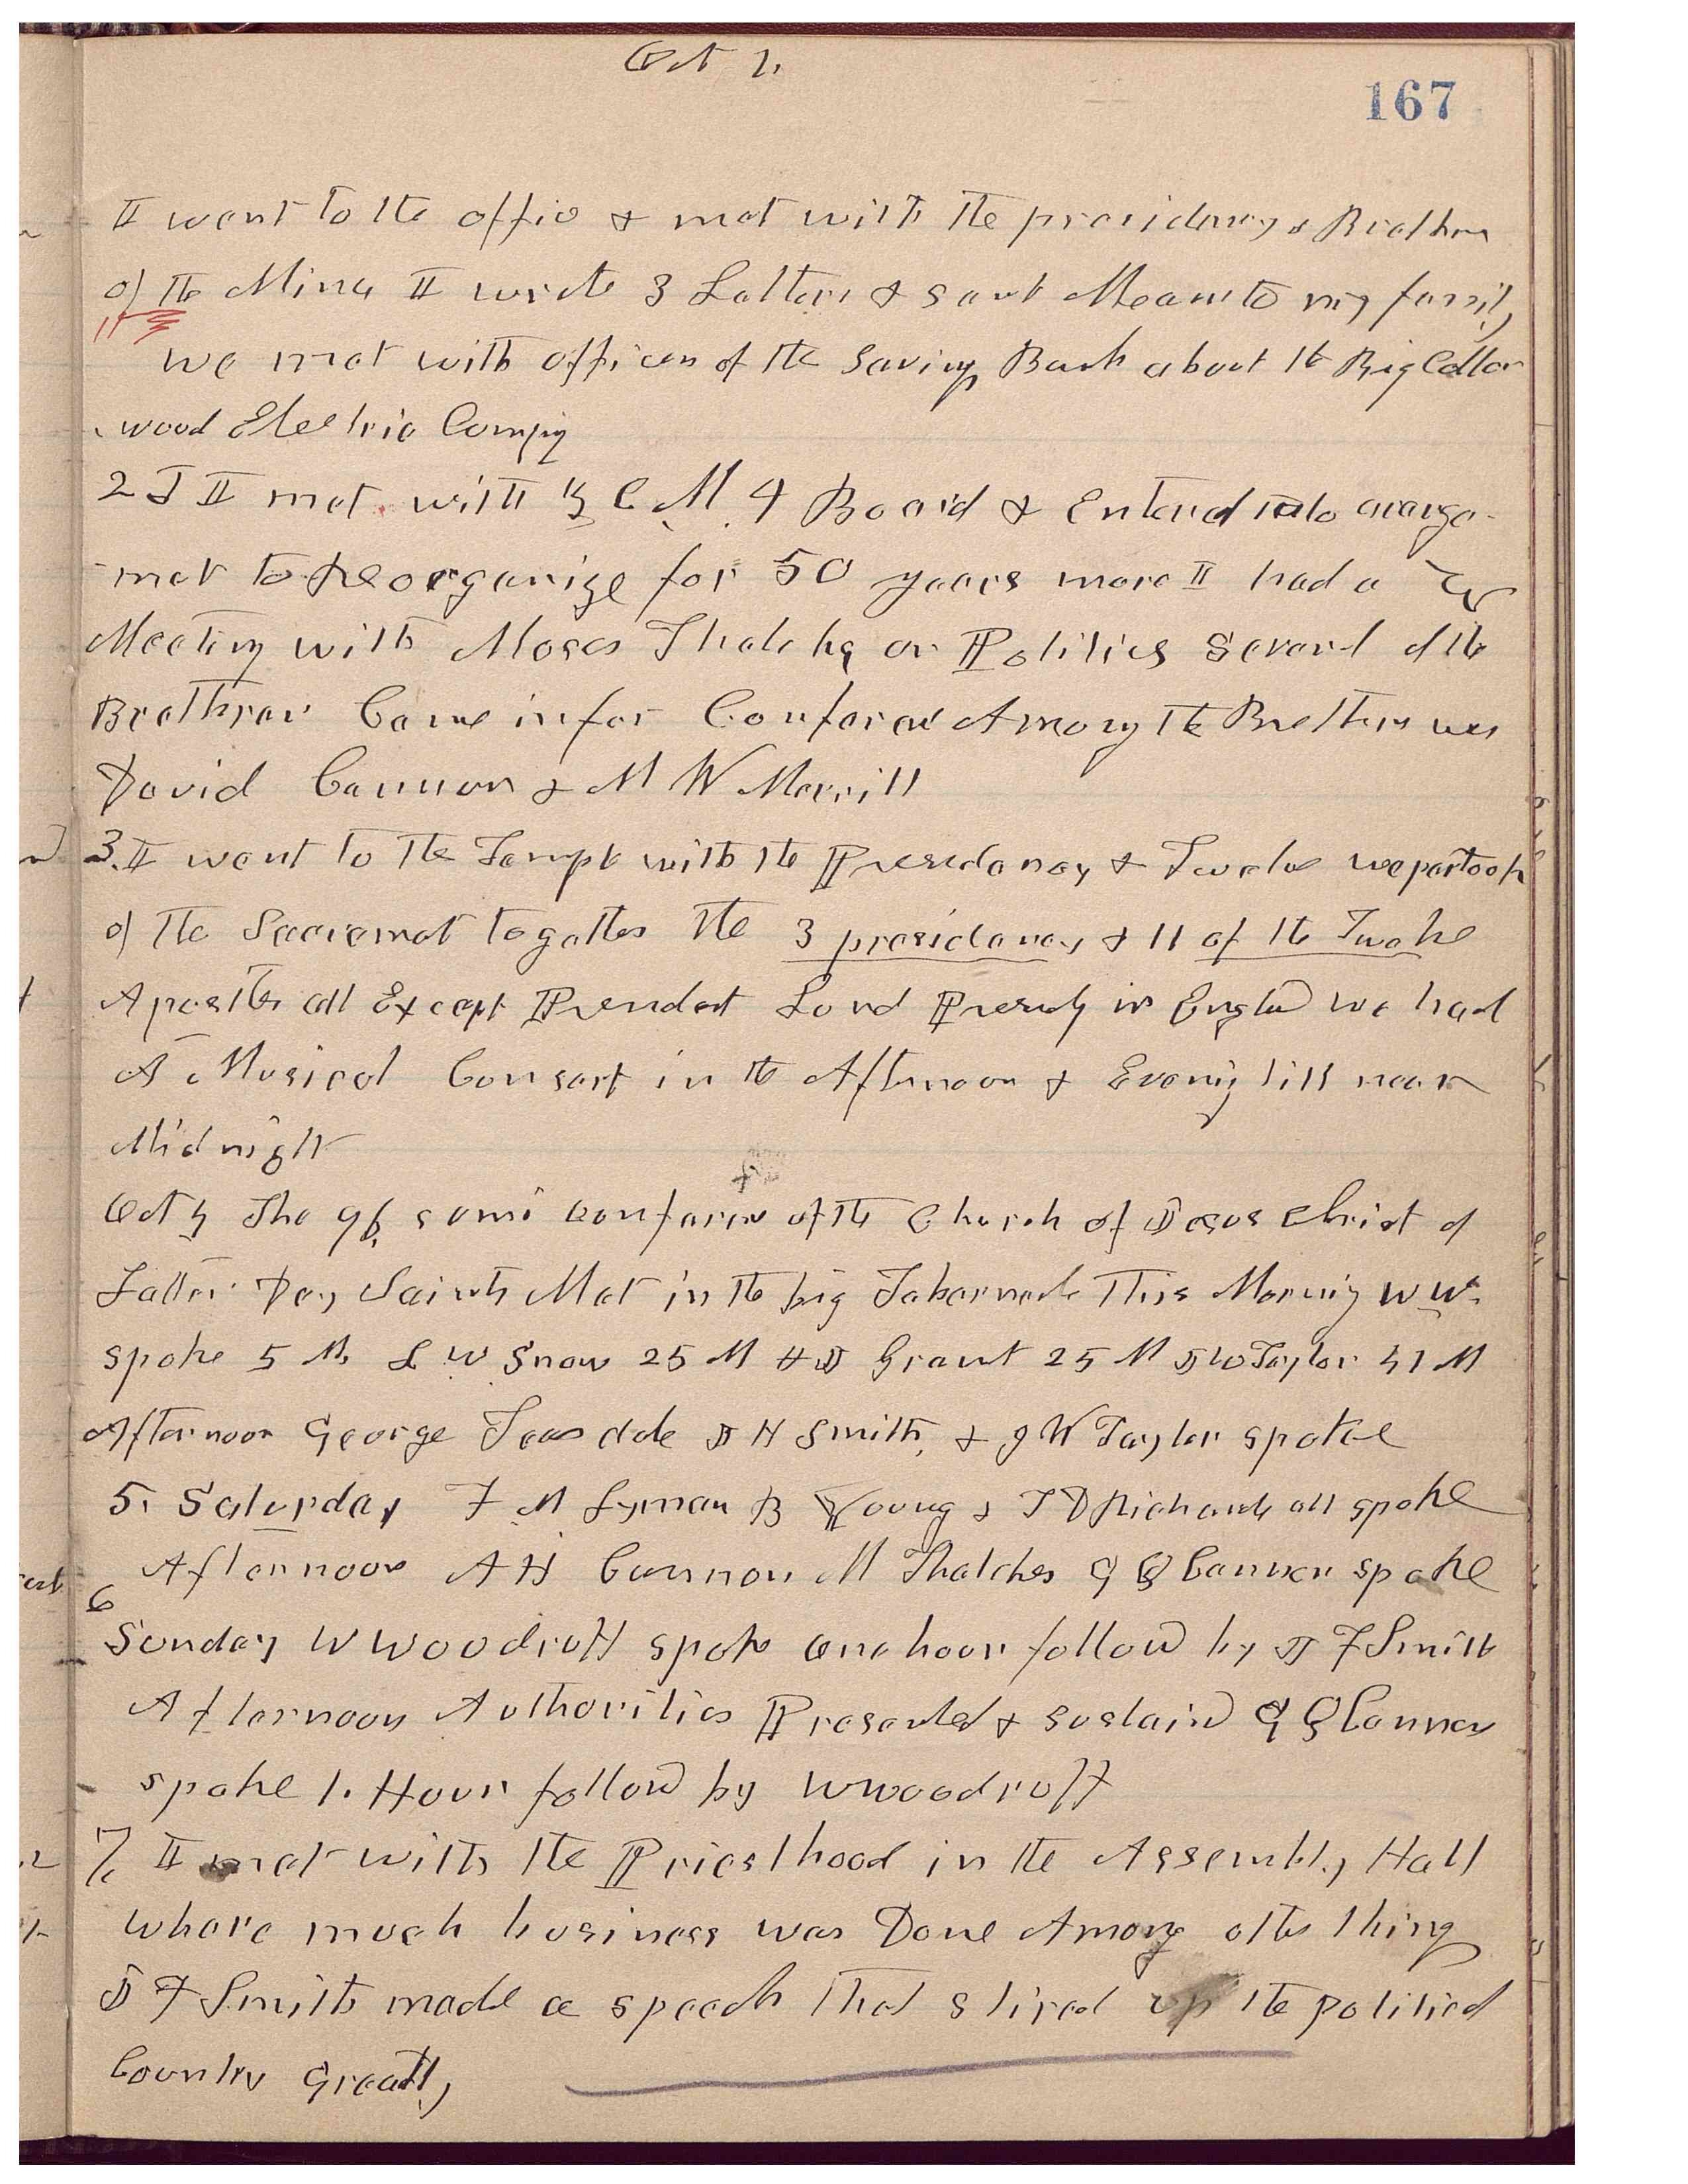 Oct 1.
167
I went to the offic & met with the presidency & Brethren
of the Mine I wrote 3 Letters & sent Means to my family
we met with officers of the Savings Bank about the Big Cotton
wood Electric Compy
2 I met with Z C M I Board & Enterd into arange-
met to Reorganize for 50 years more I had a
Meeting with Moses Thatcher on Politics Several of the
Brethren Came in for Conferen Among the Brethren was
David Cannon & M W Merrill
3. I went to the Temple with the Presidency & Twelve we partook
of the Sacramet togather the 3 presidency & 11 of the Twelve
Apostles all Except President Lund Presidg in Engld we had
A Musical Consert in the Afternoon & Evening till near
Midnight
Oct 4 The 96 semi conferen of the Church of Jesus Christ of
Latter Day Saints Met in the big Tabernacle This Morning W W.
spoke 5 M. L W Snow 25 M H J Grant 25 M J W Taylor 41 M
Afternoon George Teasdale J H Smith, & J W Taylor spoke
5. Saturday F M Lyman B Young & F D Richards all spoke
Afternoon A H Cannon M Thatcher G Q Cannon spoke
6
Sunday W Woodruff spoke one hour followd by J F Smith
Afternoon Authorities Presented & sustaind G Q Cannon
spoke 1. Hour followd by W Woodruff
7. I met with the Priesthood in the Assembly Hall
where much business was Done Among other things
J F Smith made a speech that stired up the political
Country Greatly